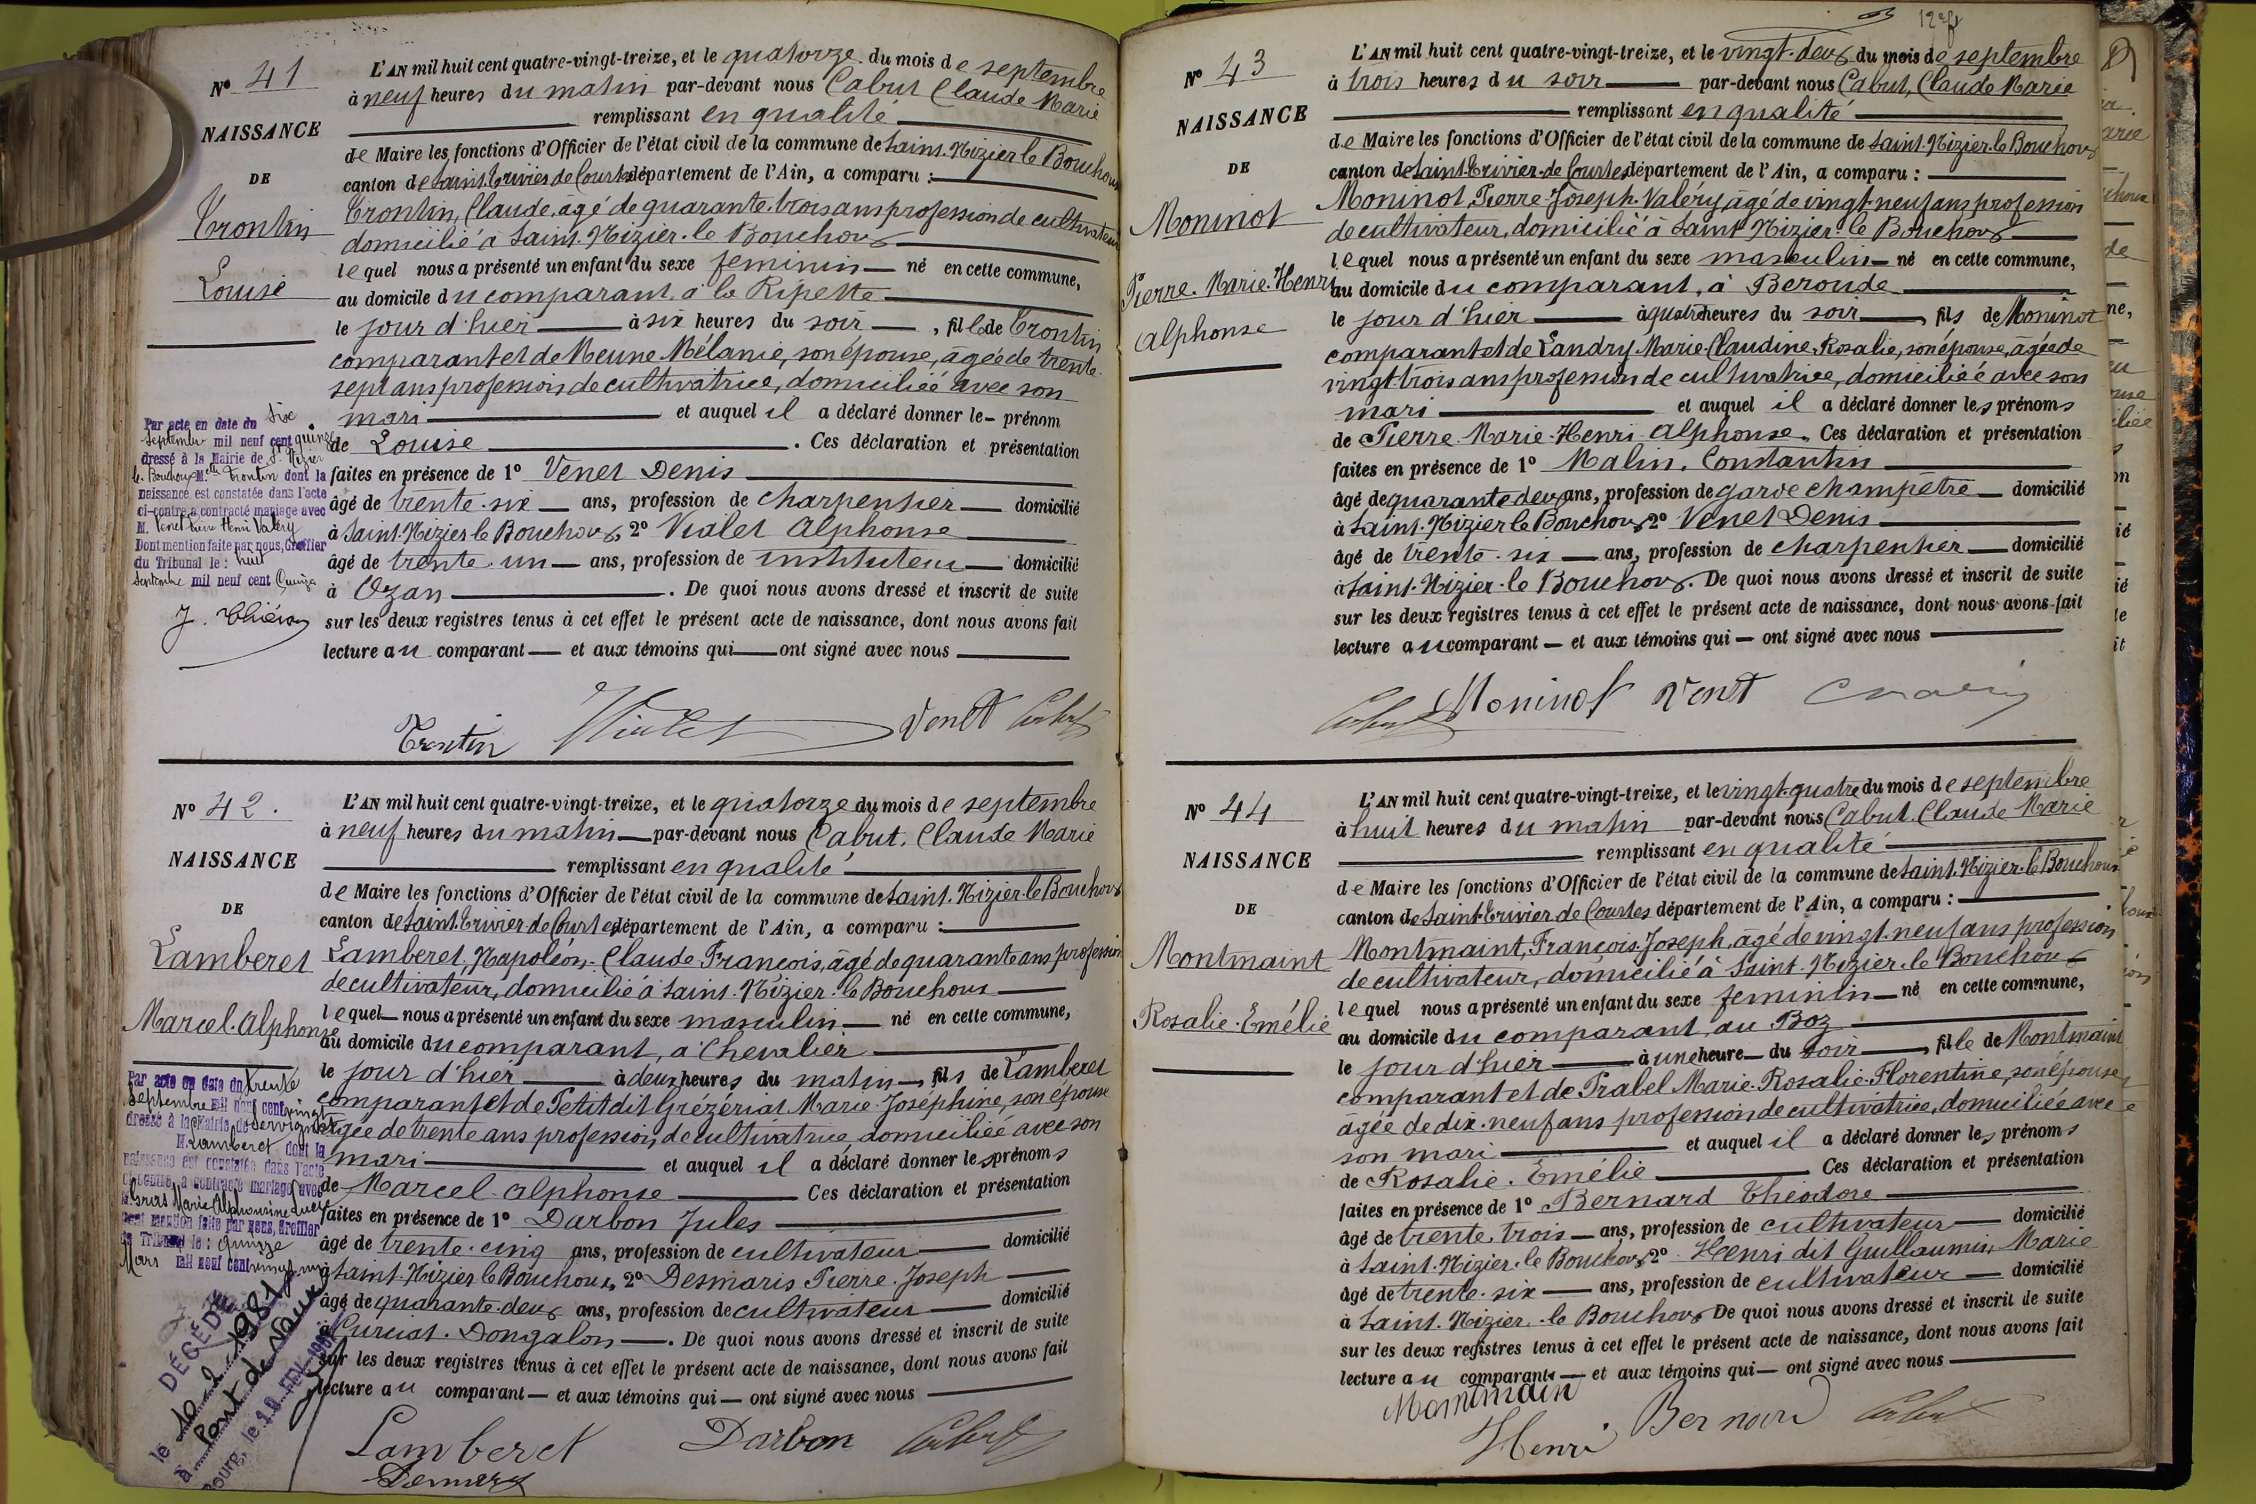 N° 41
NAISSANCE
DE
Trontin
Louise
L'AN mil huit cent quatre-vingt-treize, et le quatorze du mois de septembre
à neuf heures du matin par-devant nous Cabut Claude Marie
remplissant en qualité
de Maire les fonctions d'Officier de l'état civil de la commune de Saint-Nizier le Bouchoux
canton de Saint-Trivier de Courtes département de l'Ain, a comparu :
Trontin, Claude, âgé de quarante-trois ans profession de cultivateur
domicilié à Saint-Nizier-le Bouchoux
lequel nous a présenté un enfant du sexe feminin né en cette commune,
au domicile du comparant, à la Ripette
le jour d'hier à six heures du soir, fille de Trontin
comparant et de Meune Mélanie, son épouse, âgée de trente
sept ans profession de cultivatrice, domiciliée avec son
mari et auquel il a déclaré donner le prénom
de Louise. Ces déclaration et présentation
faites en présence de 1° Venet Denis
âgé de trente-six ans, profession de charpentier domicilié
à Saint-Nizier le Bouchoux, 2° Vialet Alphonse
âgé de trente-un ans, profession de instituteur domicilié
à Ozan. De quoi nous avons dressé et inscrit de suite
sur les deux registres tenus à cet effet le présent acte de naissance, dont nous avons fait
lecture au comparant et aux témoins qui ont signé avec nous
Trontin Vialet Venet Cabut
Par acte en date du six
Septembre mil neuf cent quinze
dressé à la Mairie de St Nizier
le Bouchoux Melle Trontin dont la
naissance est constatée dans l'acte
ci-contre a contracté mariage avec
M. Venet Henri Valéry
Dont mention faite par nous, Greffier
du Tribunal le : huit
Septembre mil neuf cent Quinze
N° 42.
NAISSANCE
DE
Lamberet
Marcel-Alphonse
L'AN mil huit cent quatre-vingt-treize, et le quatorze du mois de septembre
à neuf heures du matin par-devant nous Cabut, Claude Marie
remplissant en qualité
de Maire les fonctions d'Officier de l'état civil de la commune de Saint-Nizier-le Bouchoux
canton de Saint-Trivier-de Courtes département de l'Ain, a comparu :
Lamberet, Napoléon-Claude François, âgé de quarante ans profession
de cultivateur, domicilié à Saint-Nizier-le Bouchoux
lequel nous a présenté un enfant du sexe masculin né en cette commune,
au domicile du comparant, à Chevalier
le jour d'hier à deux heures du matin, fils de Lamberet
comparant et de Petit dit Grézériat Marie-Joséphine, son épouse
âgée de trente ans profession de cultivatrice, domiciliée avec son
mari et auquel il a déclaré donner les prénoms
de Marcel-Alphonse Ces déclaration et présentation
faites en présence de 1° Darbon Jules
âgé de trente-cinq ans, profession de cultivateur domicilié
à Saint-Nizier le Bouchoux, 2° Desmaris Pierre-Joseph
âgé de quarante-deux ans, profession de cultivateur domicilié
à Curciat-Dongalon. De quoi nous avons dressé et inscrit de suite
sur les deux registres tenus à cet effet le présent acte de naissance, dont nous avons fait
lecture au comparant et aux témoins qui ont signé avec nous
Lamberet Darbon Cabut
Par acte en date du trente
Septembre mil neuf cent vingt
dressé à la Mairie de Servignat
M. Lamberet dont la
naissance est constatée dans l'acte
ci-contre a contracté mariage avec
Marie Alphonsine
Dont mention faite par nous, Greffier
du Tribunal le : Quinze
Mars mil neuf cent vingt un
DÉCÉDÉ
le 10.2.1981
à Pont de Vaux
Bourg, le
N° 43
NAISSANCE
DE
Moninot
Pierre-Marie-Henri
Alphonse
L'AN mil huit cent quatre-vingt-treize, et le vingt-deux du mois de septembre
à trois heures du soir par-devant nous Cabut, Claude Marie
remplissant en qualité
de Maire les fonctions d'Officier de l'état civil de la commune de Saint-Nizier-le Bouchoux
canton de Saint-Trivier-de Courtes département de l'Ain, a comparu :
Moninot, Pierre-Joseph-Valéry, âgé de vingt-neuf ans profession
de cultivateur, domicilié à Saint Nizier-le Bouchoux
lequel nous a présenté un enfant du sexe masculin né en cette commune,
au domicile du comparant, à Beroude
le jour d'hier à quatre heures du soir, fils de Moninot
comparant et de Landry-Marie-Claudine-Rosalie, son épouse, âgée de
vingt-trois ans profession de cultivatrice, domiciliée avec son
mari et auquel il a déclaré donner les prénoms
de Pierre-Marie-Henri-Alphonse. Ces déclaration et présentation
faites en présence de 1° Malin, Constantin
âgé de quarante deux ans, profession de garde champêtre domicilié
à Saint-Nizier le Bouchoux 2° Venet Denis
âgé de trente-six ans, profession de charpentier domicilié
à Saint-Nizier-le Bouchoux. De quoi nous avons dressé et inscrit de suite
sur les deux registres tenus à cet effet le présent acte de naissance, dont nous avons fait
lecture au comparant et aux témoins qui ont signé avec nous
Cabut Moninot Venet
N° 44
NAISSANCE
DE
Montmaint
Rosalie-Emélie
L'AN mil huit cent quatre-vingt-treize, et le vingt-quatre du mois de septembre
à huit heures du matin par-devant nous Cabut Claude Marie
remplissant en qualité
de Maire les fonctions d'Officier de l'état civil de la commune de Saint-Nizier-le Bouchoux
canton de Saint-Trivier de Courtes département de l'Ain, a comparu :
Montmaint, François-Joseph, âgé de vingt-neuf ans profession
de cultivateur, domicilié à Saint-Nizier-le Bouchoux
lequel nous a présenté un enfant du sexe feminin né en cette commune,
au domicile du comparant au Boz
le jour d'hier à une heure du soir, fille de Montmaint
comparant et de Prabel Marie-Rosalie-Florentine, son épouse
âgée de dix-neuf ans profession de cultivatrice, domiciliée avec
son mari et auquel il a déclaré donner les prénoms
de Rosalie-Emélie Ces déclaration et présentation
faites en présence de 1° Bernard Théodore
âgé de trente trois ans, profession de cultivateur domicilié
à Saint-Nizier-le Bouchoux 2° Henri dit Guillaumin, Marie
âgé de trente-six ans, profession de cultivateur domicilié
à Saint-Nizier-le Bouchoux De quoi nous avons dressé et inscrit de suite
sur les deux registres tenus à cet effet le présent acte de naissance, dont nous avons fait
lecture au comparant et aux témoins qui ont signé avec nous
Montmain
Henri Bernard Cabut